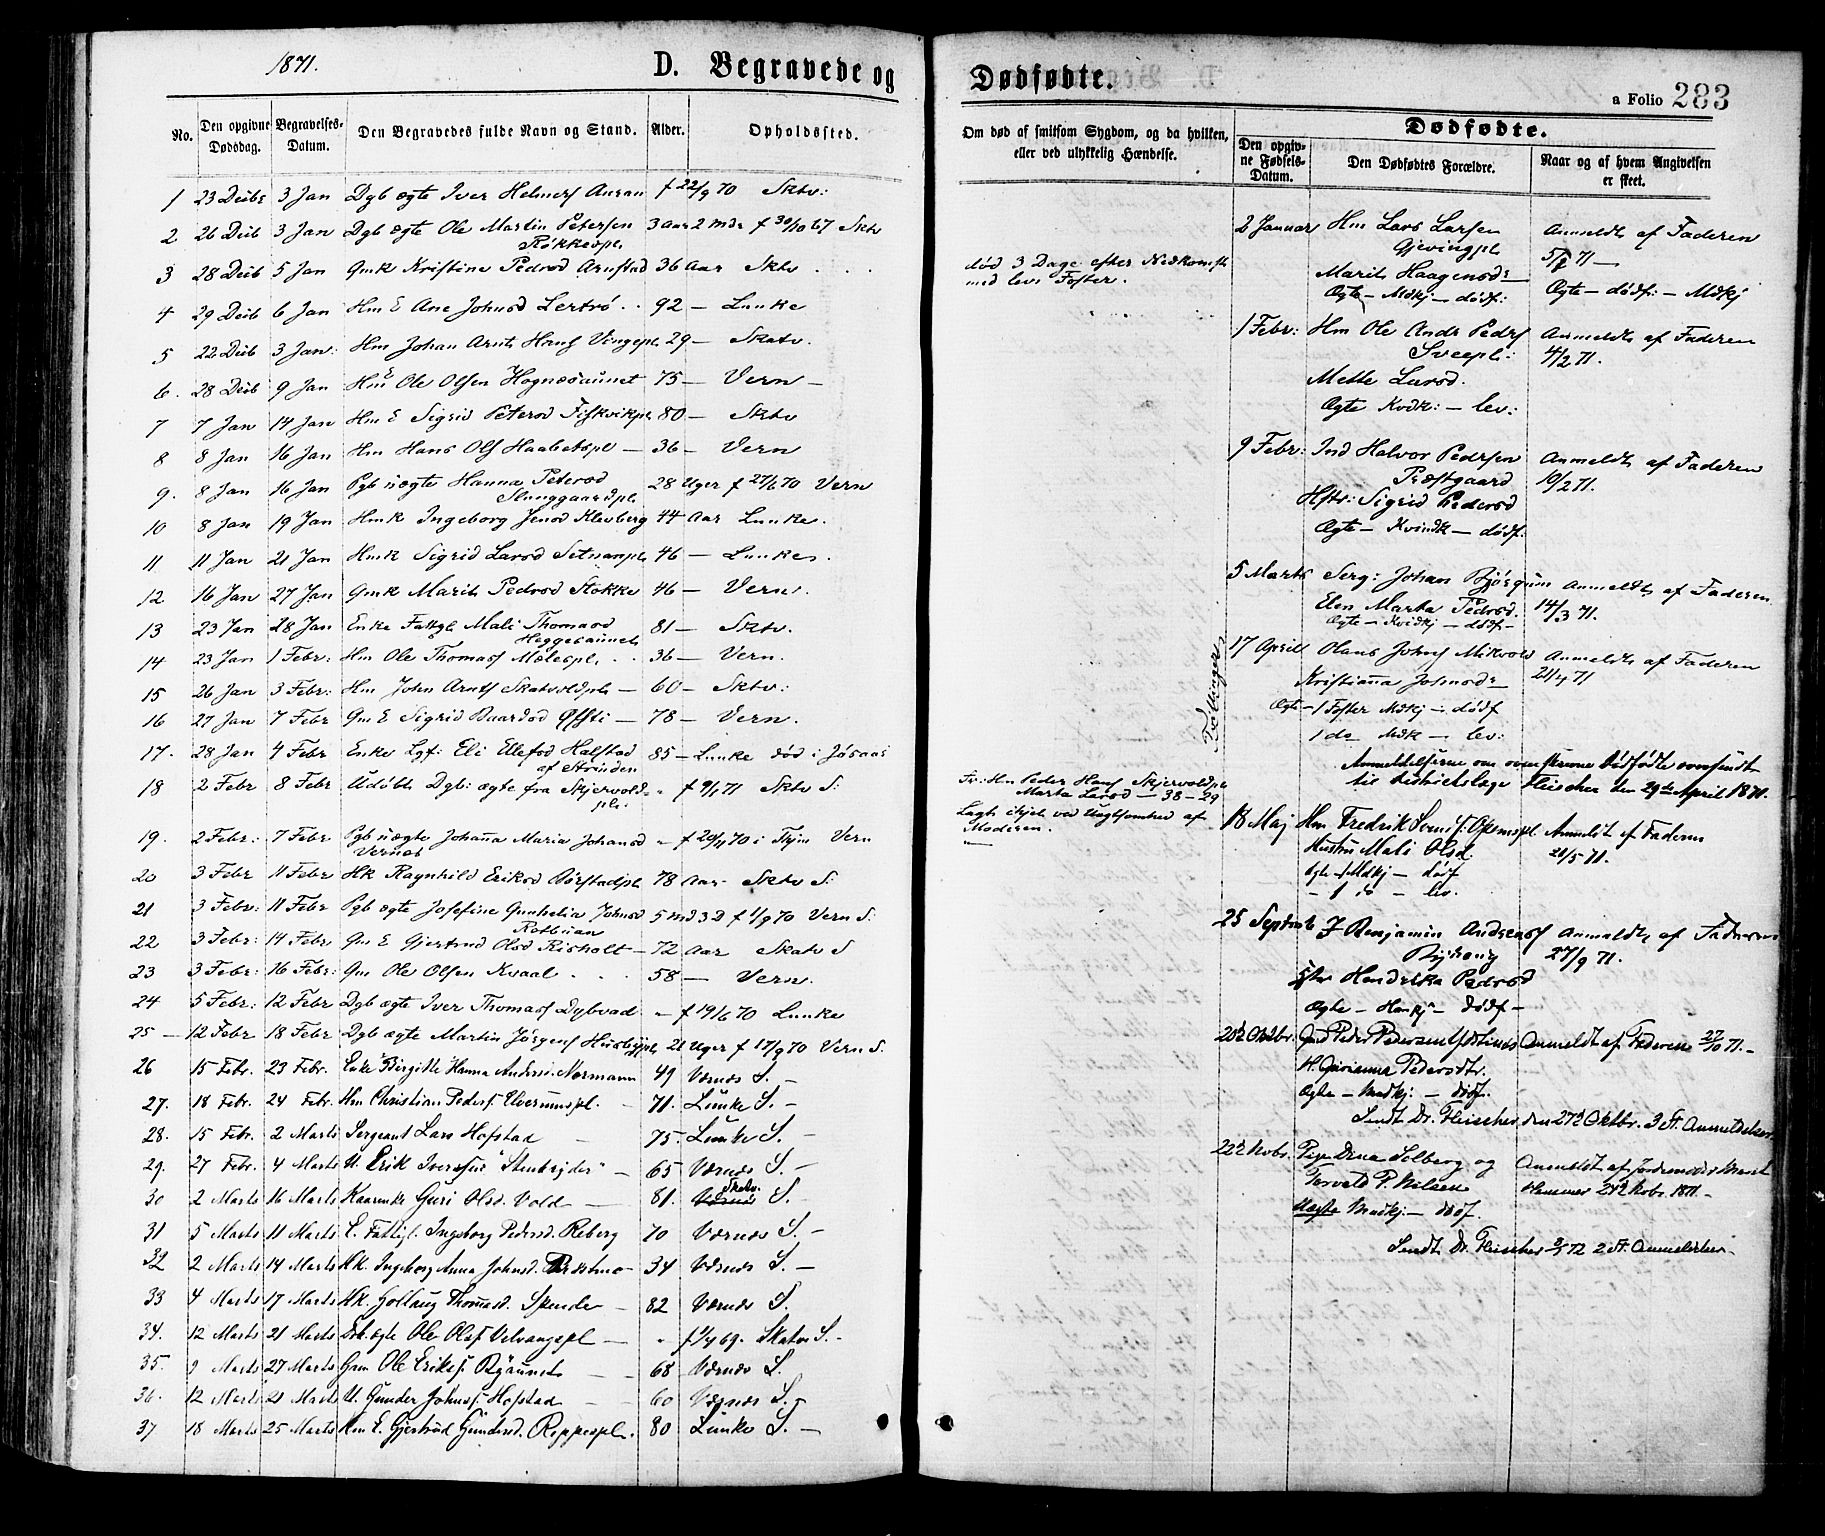 1871.
D. Begravede og
Dødfødte.
a Folio 283
No.
Den opgivne Dødsdag.
Begravelses-Datum.
Den Begravedes fulde Navn og Stand.
Alder.
Opholdssted.
Om død af smitsom Sygdom, og da hvilken, eller ved ulykkelig Hændelse.
Dødfødte.
Den opgivne Fødsels-Datum.
Den Dødfødtes Forældre.
Naar og af hvem Angivelsen er skeet.
1 23 Decbr 3 Jan Dgb ægte Iver Helmers Auran f 22/9 70 Sktv:
2 26 Decb 3 Jan Dgb ægte Ole Martin Petersen 3 Aar 2 mdr f 30/10 67 Sktv
Røkkespl.
3 28 Decb 5 Jan Gmk Kristine Pedrsd Arnstad 36 Aar Sktv
4 29 Decb 6 Jan Hm E Ane Johnsd Lertrø 92 — Lunke
5 22 Decb 3 Jan: Hm Johan Arnt Hans Vingepl 29 — Skatv.
6. 28 Decb 9 Jan Hm E Ole Olsen Hognesaunet 75 — Vern —
7 7 Jan 14 Jan Hm E Sigrid Petersd Fiskvikpl 80 — Sktv
8 8 Jan 16 Jan Hm Hans Ols Haabetspl — 36 — Vern
9. 8 Jan 16 Jan Pgb uægte Hanna Petersd 28 Uger f 27/6 70 Vern
Slunggaardpl.
10 8 Jan 19 Jan Hmk Ingeborg Jensd Klevberg 44 Aar Lunke.
11 11 Jan 21 Jan Hmk Sigrid Larsd Setnanpl 46 — Lunke.
12 16 Jan 27 Jan Gmk Marit Pedrsd Stokke 46 — Vern.
13 23 Jan 28 Jan Enke Fattgl Mali Thomasd 81 — Sktv.
Heggesaunet
14 23 Jan 1 Febr: Hm Ole Thomass Mælespl. 36 — Vern.
15 26 Jan 3 Febr: Hm John Arnts Skatvoldpl — 60 — Sktv:
16 27 Jan 7 Febr Gm E Sigrid Baardsd Øfsti — 78 — Vern.
17. 28 Jan 4 Febr Enke Lgf: Eli Ellefsd Halstad 85 — Lunke død i Jøsaas
af Strinden
18 2 Febr 8 Febr Udøbt Dgb: ægte fra Skjervold- „ f 9/1 71 Sktv S:
pl:
19. 2 Febr: 7 Febr Pgb uægte Johanna Maria Johansd „ f 20/11 70 i Thjm Vern
Vernes
20 3 Febr 11 Febr Hk Ragnhild Eriksd Børstadpl 78 Aar Sktv S:
21 3 Febr: 11 Febr Pgb ægte Josefine Gunhelia Johnsd 5 md 3 D f 1/9 70 Vern S:
Rotbuan
22 3 Febr: 14 Febr Gm E Gjertrud Olsd Risholt — 72 Aar Skatv S
23 3 Febr: 16 Febr: Gm Ole Olsen Kvaal 58 — Vern.
24 5 Febr: 12 Febr Dgb ægte Iver Thomass Dybvad „ f 19/6 70 Lunke
25 — 12 Febr 18 Febr Dgb ægte Martin Jørgens Husbypl 21 Uger f 17/9 70 Vern S.
26 15 Febr. 23 Febr. Enke Birgitte Hanna Anders: Normann 49 Værnes S. —
27. 18 Febr. 24 Febr. Hm Christian Peders. Elverumspl. 71. Lunke S. —
28. 15 Febr. 2 Marts Sergeant Lars Hofstad 75. Lunke S. —
29. 27 Febr. 4 Marts U. Erik Iverssøn "Stenbryder" — 65 Værnes S. —
30 2 Marts 16 Marts Kaarenke Guri Olsd. Vold — 81. Værnes Skatv. S. —
31 5 Marts 11 Marts E. Fattigl. Ingeborg Pedersd. Reberg 70 Værnes S. —
32 2 Marts 14 Marts Hk. Ingeborg Anna Johnsd. Præstmo — 34 Værnes S. —
33 4 Marts 17 Marts Hk. Gollaug Thomasd. Skjende — 82 Værnes S.
34. 12 Marts 21 Marts Drb. ægte Ole Olafs. Velvangspl — „ f 1/4 69. Skatv S. —
35. 9 Marts 27 Marts Gm Ole Eriks. Bjøaunet 68 Værnes S.
36. 12 Marts 21 Marts U. Gunder Johns. Hofstad 60 Værnes S. —
37 18 Marts 25 Marts Hm E. Gjertrud Gundersd. Reppespl. 80 Lunke S. —
død 3 Dage efter Nedkomst
med lev: Foster.
Fr: Hm Peder Hans Skjervoldpl
Marta Larsd — 38 — 29
Lagt ihjel ved Uagtsomhed af
Moderen.
Tvillinger
2 Januar Hm Lars Larsen Anmeldt af Faderen
Gjevingpl 5/1 71 —
Marit Haagensd:
Ægte — Mdkj — dødf: Ægte — dødf: — Mdkj
1 Febr: Hm Ole Andr Peders Anmeldt af Faderen
Sveepl: 4/2 71.
Mette Larsd.
Ægte Kvdk: — lev:
9 Febr: Ind Halvor Pedersen Anmeldt af Faderen
Præstgaard 10/2 71.
Hstr: Sigrid Pedersd
Ægte — Kvindk — dødf:
5 Marts Serg: Johan Bjørgum Anmeldt af Faderen
Elen Marta Pedrsd. 14/3 71.
Ægte — Kvidkj — dødf —
17 April Olaus Johns Mikvold Anmeldt af Faderen
Kristianna Johnsd: 21/4 71
Ægte — 1 Foster Mdkj — dødf
1 do Mdk — lev:
Anmeldelserne om ovenskrevne Dødfødte oversendt
til Distriktslæge Fleischer den 29de April 1871.
18 Maj Hm Fredrik Svends. Opemspl. Anmeldt af Faderen
Hustru Mali Olsd. 21/5 71.
ægte — 1 Mdkj — dødf
— 1 do — lev.
25 Septmb I Benjamin Andreas Anmeldt af Faderen
27/9 71.
Hstr Hendrikka Pedrsd
Ægte — Hankj — dødf —
20de Oktbr. Gmd Peder Pedersen Anmeldt af Faderen 27/10 71. —
H. Gurianna Pedersdtr.
Ægte — Mndkj: — dødf.
Sendt Dr. Fleischer den 27de Oktbr. 3 St. Anmeldelser.
22de Novbr. Pige Dina Solberg og Anmeldt af Jordemoder
Torvald P. Nilsen 24de Novbr. 1871 —
Uægte Mndkj — dødf.
Sendt Dr. Fleischer 2/1 72 2 St. Anmeldelser —